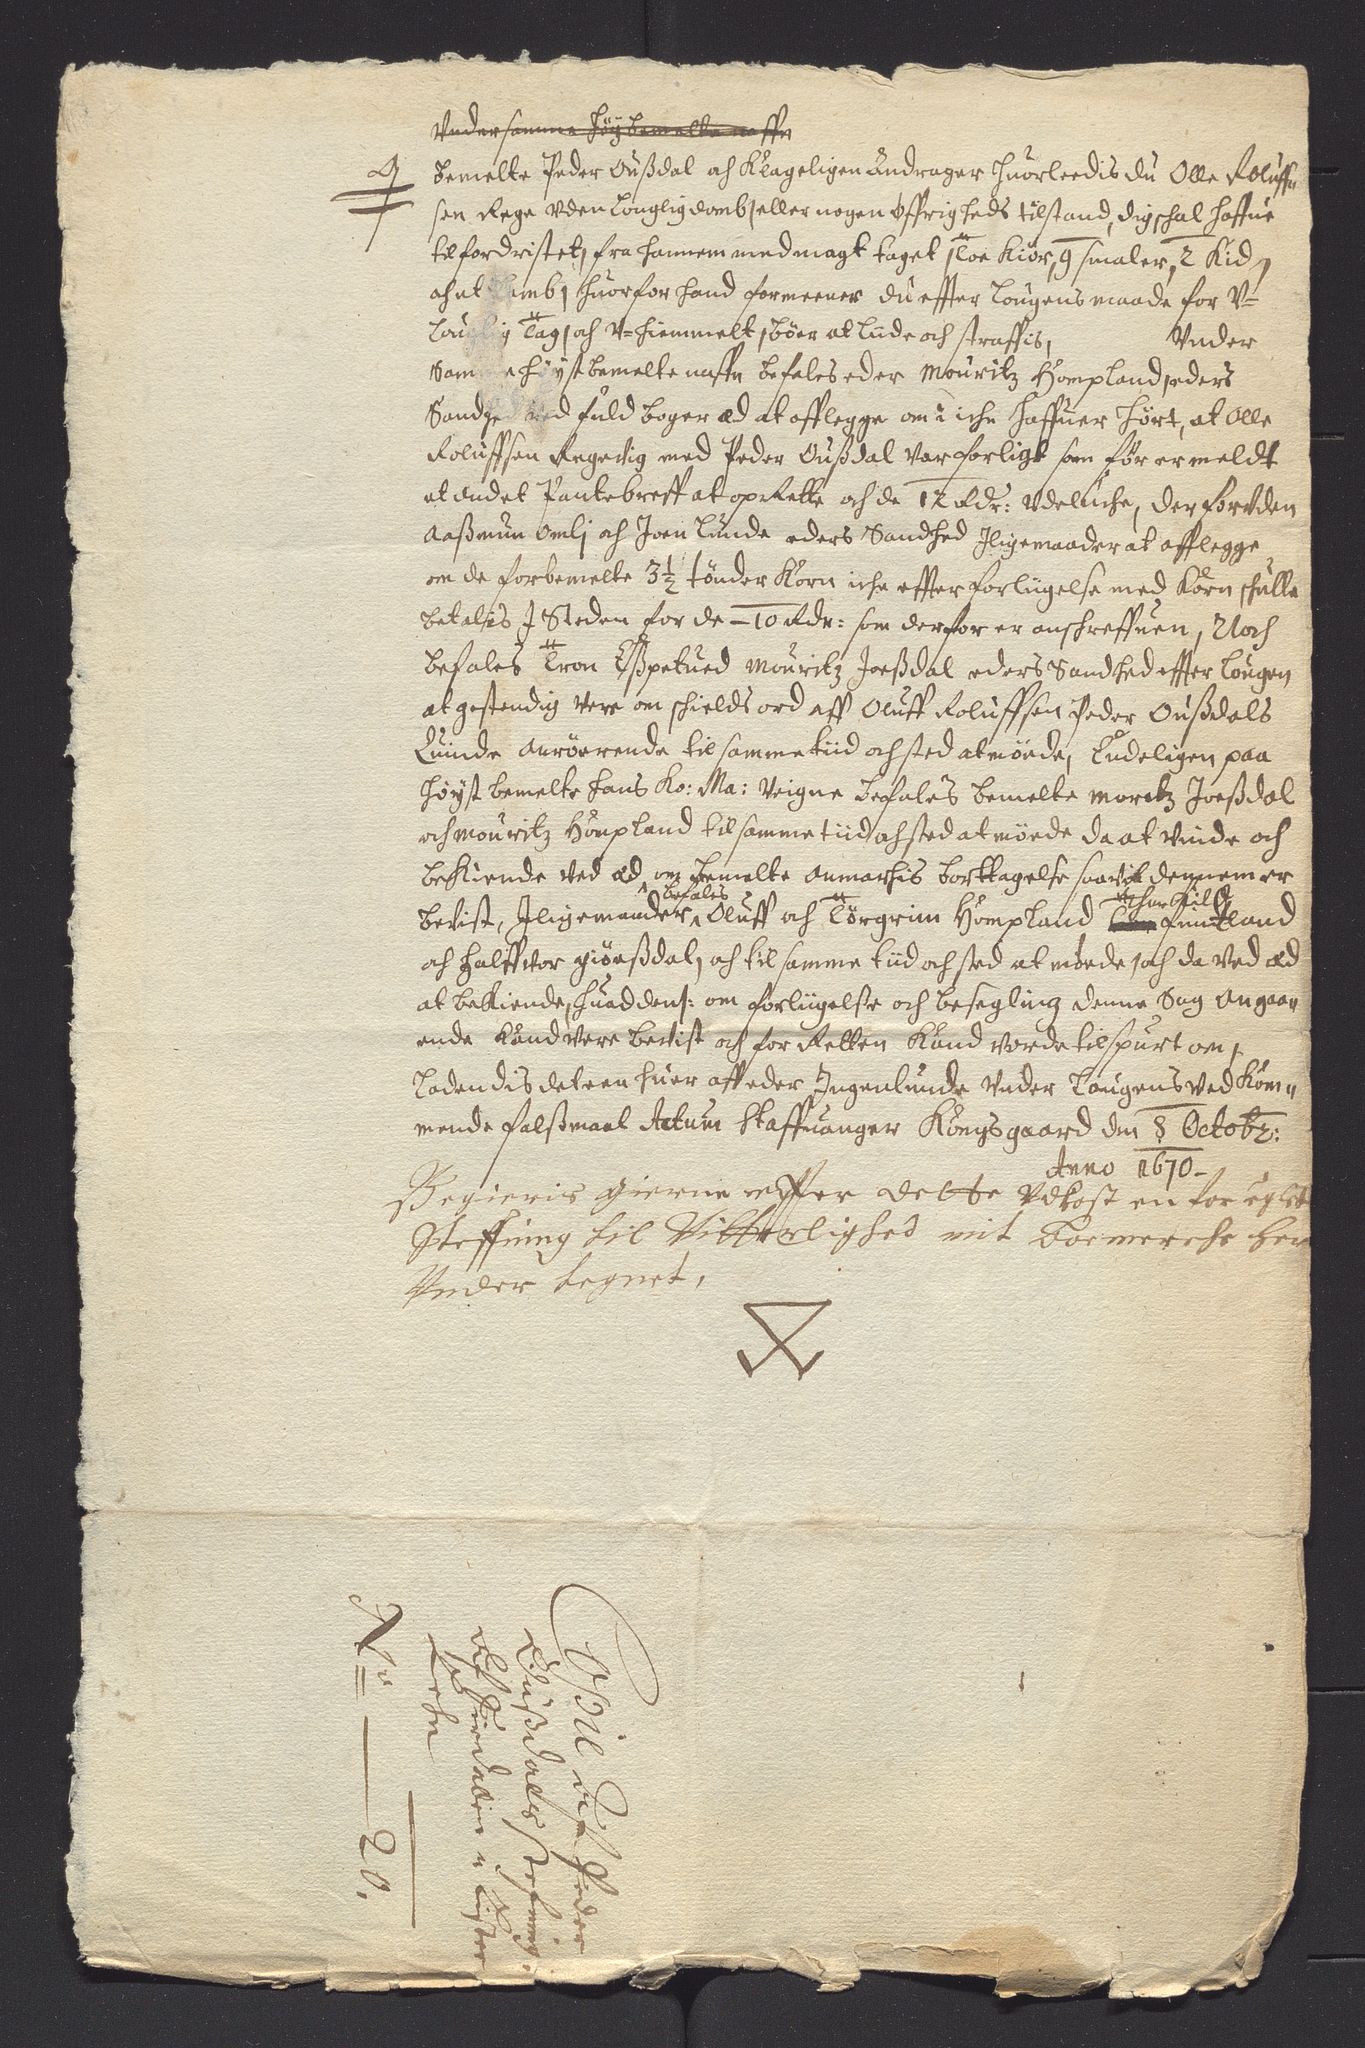 Vnder samme høybemelte naffn
9 bemelte Peder Oußdal och Klageligen andrager huorleedis du Olle Roluff
sen Rege vden louglig domb, eller nogen øffrigheds tilstand, dig schal haffue
tilfordristet, fra hannem med magt taget, toe Kiør, 9 smaler, 2 Kid
och et lamb, huorfor hand formeener du effter lougens maade for V=
louglig tag, och V=hiemmelt, bøer at liide och straffis, Vnder
samme høyst bemelte naffn befales eder Mouritz Hompland, eders
Sandhed med fuld boger æd at afflegge om i iche haffuer hørt, at Olle
Roluffsen Regevig med Peder Oußdal var forligt som før er meldt
et andet Pantebreff at opRette och de 12 Rdr: vdeluche, der foruden
Aaßmun Omli och Joen Lunde eders Sandhed Jligemaader at afflegge
om de forbemelte 3½ tønder Korn iche effter forliigelse med Korn schulle
betales J Steden for de – 10 Rdr: som derfor er anschreffuen, Noch
befales Tron Eßpetued Mouritz Joeßdal eders Sandhed effter lougen
at gestendig vere om schields ord aff Oluff Roluffsen Peder Oußdals
Quinde anrørende til samme tiid och sted at møede, Endeligen paa
høyst bemelte hans Ko: Ma: Veigne befales bemelte Moritz Joeßdal
och Mouritz Hompland til samme tiid och sted at møede da at vinde och
bekiende ved æd om bemelte anmarchis borttagelse saavit dennem er
bevist, Jligemaader befales Oluff och Tørgrim Hompland Tharkil Fintland
och Halffvor giøeßdal, och til samme tiid och sted at møede och da ved æd
at bekiende, huad dens: om forliigelse och besegling denne Sag angaa
ende kand vere bevist och for Retten kand vorde tilspurt om,
ladendis det een huer aff eder Jngenlunde vnder lougens ved Kom
mende falßmaal Actum Staffuanger Kongsgaard den 8 Octobr:
Anno 1670
Begieris gierne effter dette Vdkast en for
Steffning til Vitterlighed mit boemerche her
Vnder tegnet,
Peder
Oußdals stefning
Lister
Lehn
No 20.